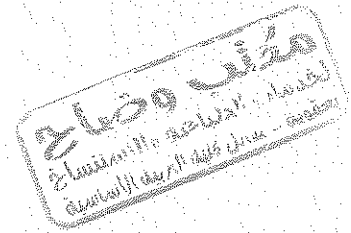 مكتب وضاح
لخدمات الطباعة والاستنساخ
مقابل كلية التربية الأساسية